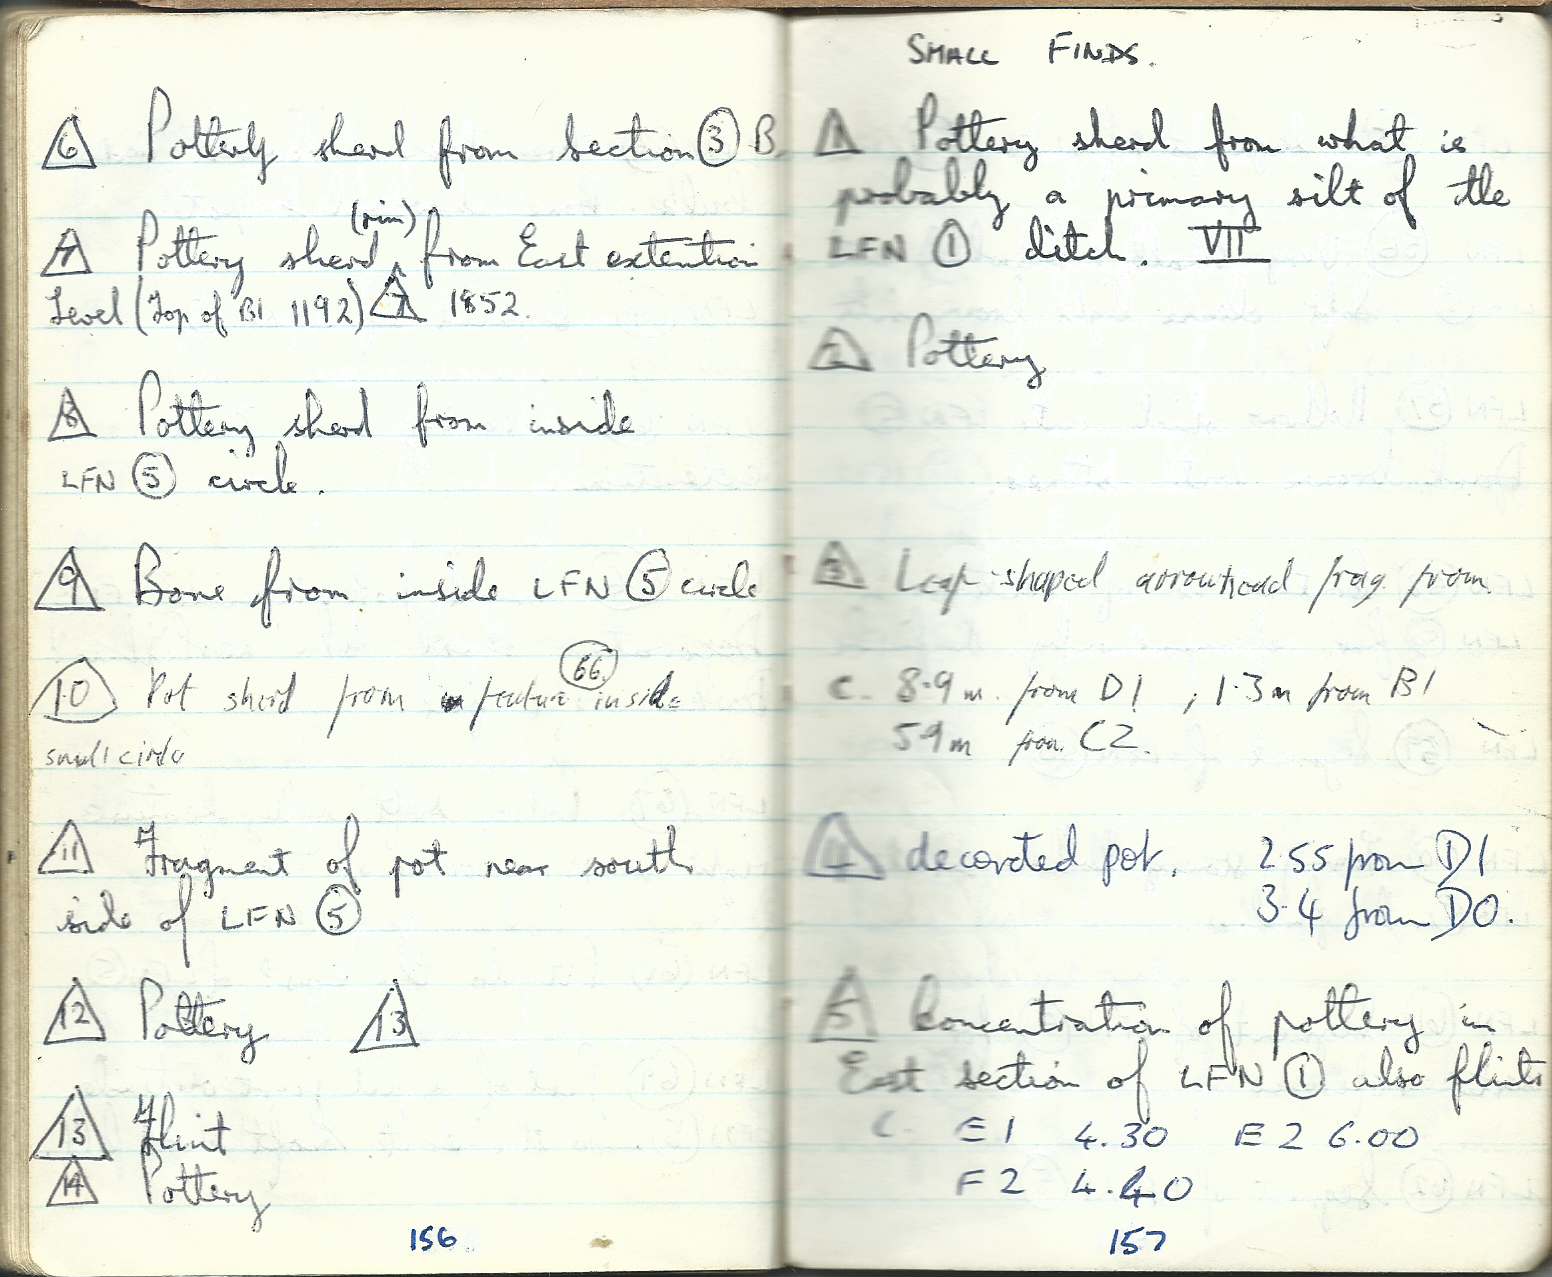 6 Pottery sherd from section 3 B
(rim)
7 Pottery sherd ^ from East extention
Level (Top of B1 1192) 7 1852.
8 Pottery sherd from inside
LFN 5 circle.
9 Bone from inside LFN 5 circle
66
10 Pot sherd from feature inside
small circle
11 Fragment of pot near south
side of LFN 5
12 Pottery 13
13 Flint
14 Pottery
156
SMALL FINDS.
1 Pottery sherd from what is
probably a primary silt of the
LFN 1 ditch. VII
2 Pottery
3 Leaf-shaped arrowhead frag from
C. 8.9m. from D1 ; 1.3m from B1
5.9m from C2.
4 decorated pot. 2.55 from D1
3.4 from D0.
5 Concentration of pottery in
East section of LFN 1 also flints
C. E1 4.30 E2 6.00
F2 4.40
157